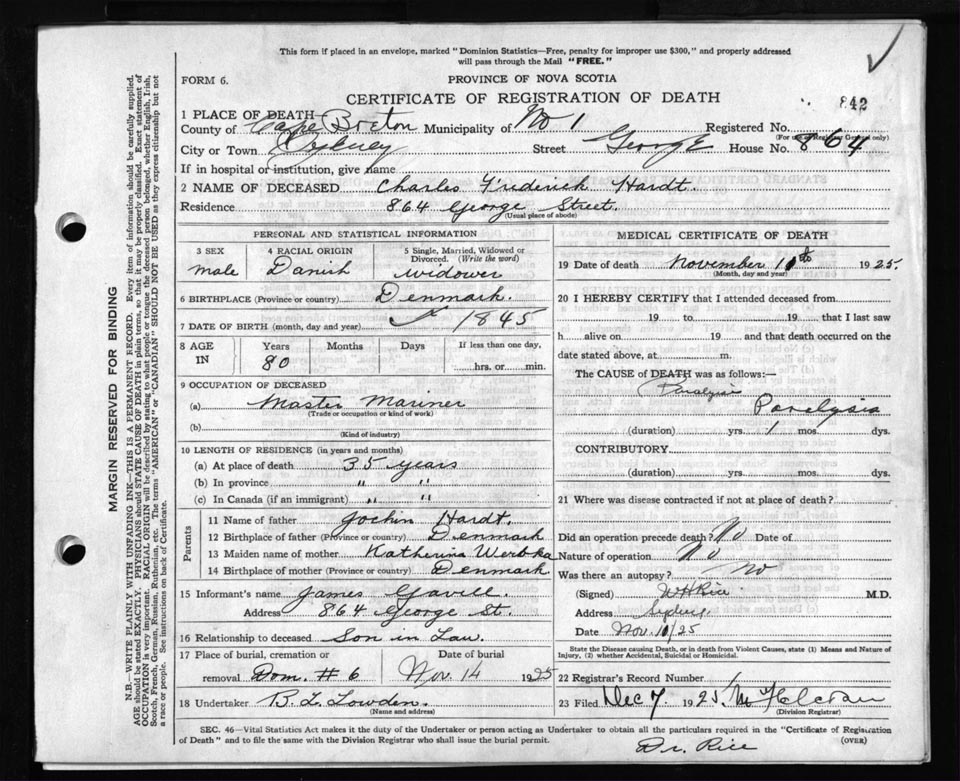 This form if placed in an envelope, marked "Dominion Statistics—Free, penalty for improper use $300," and properly addressed
will pass through the Mail "FREE."
FORM 6.
PROVINCE OF NOVA SCOTIA
CERTIFICATE OF REGISTRATION OF DEATH
842
1 PLACE OF DEATH
County of Cape Breton Municipality of No 1 Registered No.
(For use of Registrar General only)
City or Town Sydney Street George House No. 864
If in hospital or institution, give name
2 NAME OF DECEASED Charles Frederick Hardt.
Residence 864 George Street.
(Usual place of abode)
PERSONAL AND STATISTICAL INFORMATION
3 SEX male
4 RACIAL ORIGIN Danish
5 Single, Married, Widowed or Divorced. (Write the word) widower
6 BIRTHPLACE (Province or country) Denmark.
7 DATE OF BIRTH (month, day and year) 1845
8 AGE IN Years 80 Months Days If less than one day, hrs. or min.
9 OCCUPATION OF DECEASED
(a) Master Mariner
(Trade or occupation or kind of work)
(b)
(Kind of industry)
10 LENGTH OF RESIDENCE (in years and months)
(a) At place of death 35 years
(b) In province " "
(c) In Canada (if an immigrant) " "
Parents
11 Name of father Jochin Hardt.
12 Birthplace of father (Province or country) Denmark
13 Maiden name of mother Katherina
14 Birthplace of mother (Province or country) Denmark
15 Informant's name James
Address 864 George St.
16 Relationship to deceased Son in Law.
17 Place of burial, cremation or removal Dom. # 6
Date of burial Nov. 14 1925
18 Undertaker B. L. Lowden.
(Name and address)
MEDICAL CERTIFICATE OF DEATH
19 Date of death November 1925.
(Month, day and year)
20 I HEREBY CERTIFY that I attended deceased from
19 to 19 that I last saw
h alive on 19 and that death occurred on the
date stated above, at m.
The CAUSE of DEATH was as follows:—
Paralysis
Paralysis
(duration) yrs. 1 mos. dys.
CONTRIBUTORY
(duration) yrs. mos. dys.
21 Where was disease contracted if not at place of death?
Did an operation precede death? No Date of
Nature of operation No
Was there an autopsy? No
(Signed) W H Rice M.D.
Address Sydney
Date Nov. /25
State the Disease causing Death, or in Death from Violent Causes, state (1) Means and Nature of
Injury, (2) whether Accidental, Suicidal or Homicidal.
22 Registrar's Record Number
23 Filed Dec 7. 1925.
(Division Registrar)
SEC. 46—Vital Statistics Act makes it the duty of the Undertaker or person acting as Undertaker to obtain all the particulars required in the "Certificate of Registration
of Death" and to file the same with the Division Registrar who shall issue the burial permit.
(OVER)
Dr. Rice
MARGIN RESERVED FOR BINDING
N.B.—WRITE PLAINLY WITH UNFADING INK—THIS IS A PERMANENT RECORD. Every item of information should be carefully supplied.
AGE should be stated EXACTLY. PHYSICIANS should STATE CAUSE OF DEATH in plain terms, so that it may be properly classified. Exact statement of
OCCUPATION is very important. RACIAL ORIGIN will be described by stating to what people or tongue the deceased person belonged, whether English, Irish,
Scotch, French, German, Russian, Ruthenian, etc. The terms "AMERICAN" or "CANADIAN" SHOULD NOT BE USED as they express citizenship but not
a race or people. See instructions on back of Certificate.